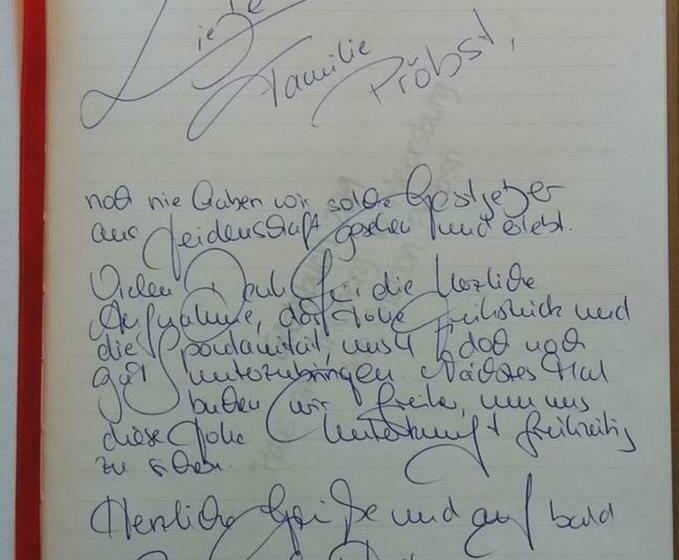 Liebe
Familie Pröbst,
noch nie haben wir solche Gastgeber
aus Leidenschaft gesehen und erlebt.
Vielen Dank für die herzliche
Aufnahme, das tolle Frühstück und
die Spontanität, uns 4 doch noch
gut unterzubringen. Nächstes Mal
buchen wir früher, um uns
diese tolle Unterkunft frühzeitig
zu sichern.
Herzliche Grüße und auf bald